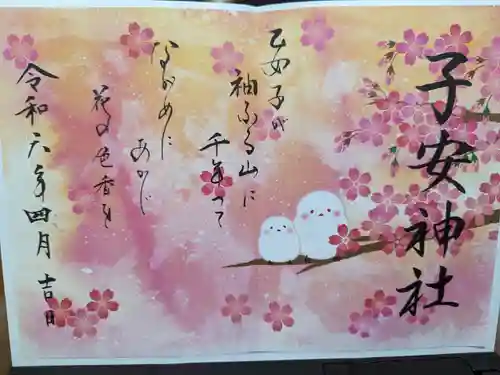 子安神社
乙女子が
袖ふる山に
千年へて
ながめに
あかじ
花の色香を
令和六年四月吉日